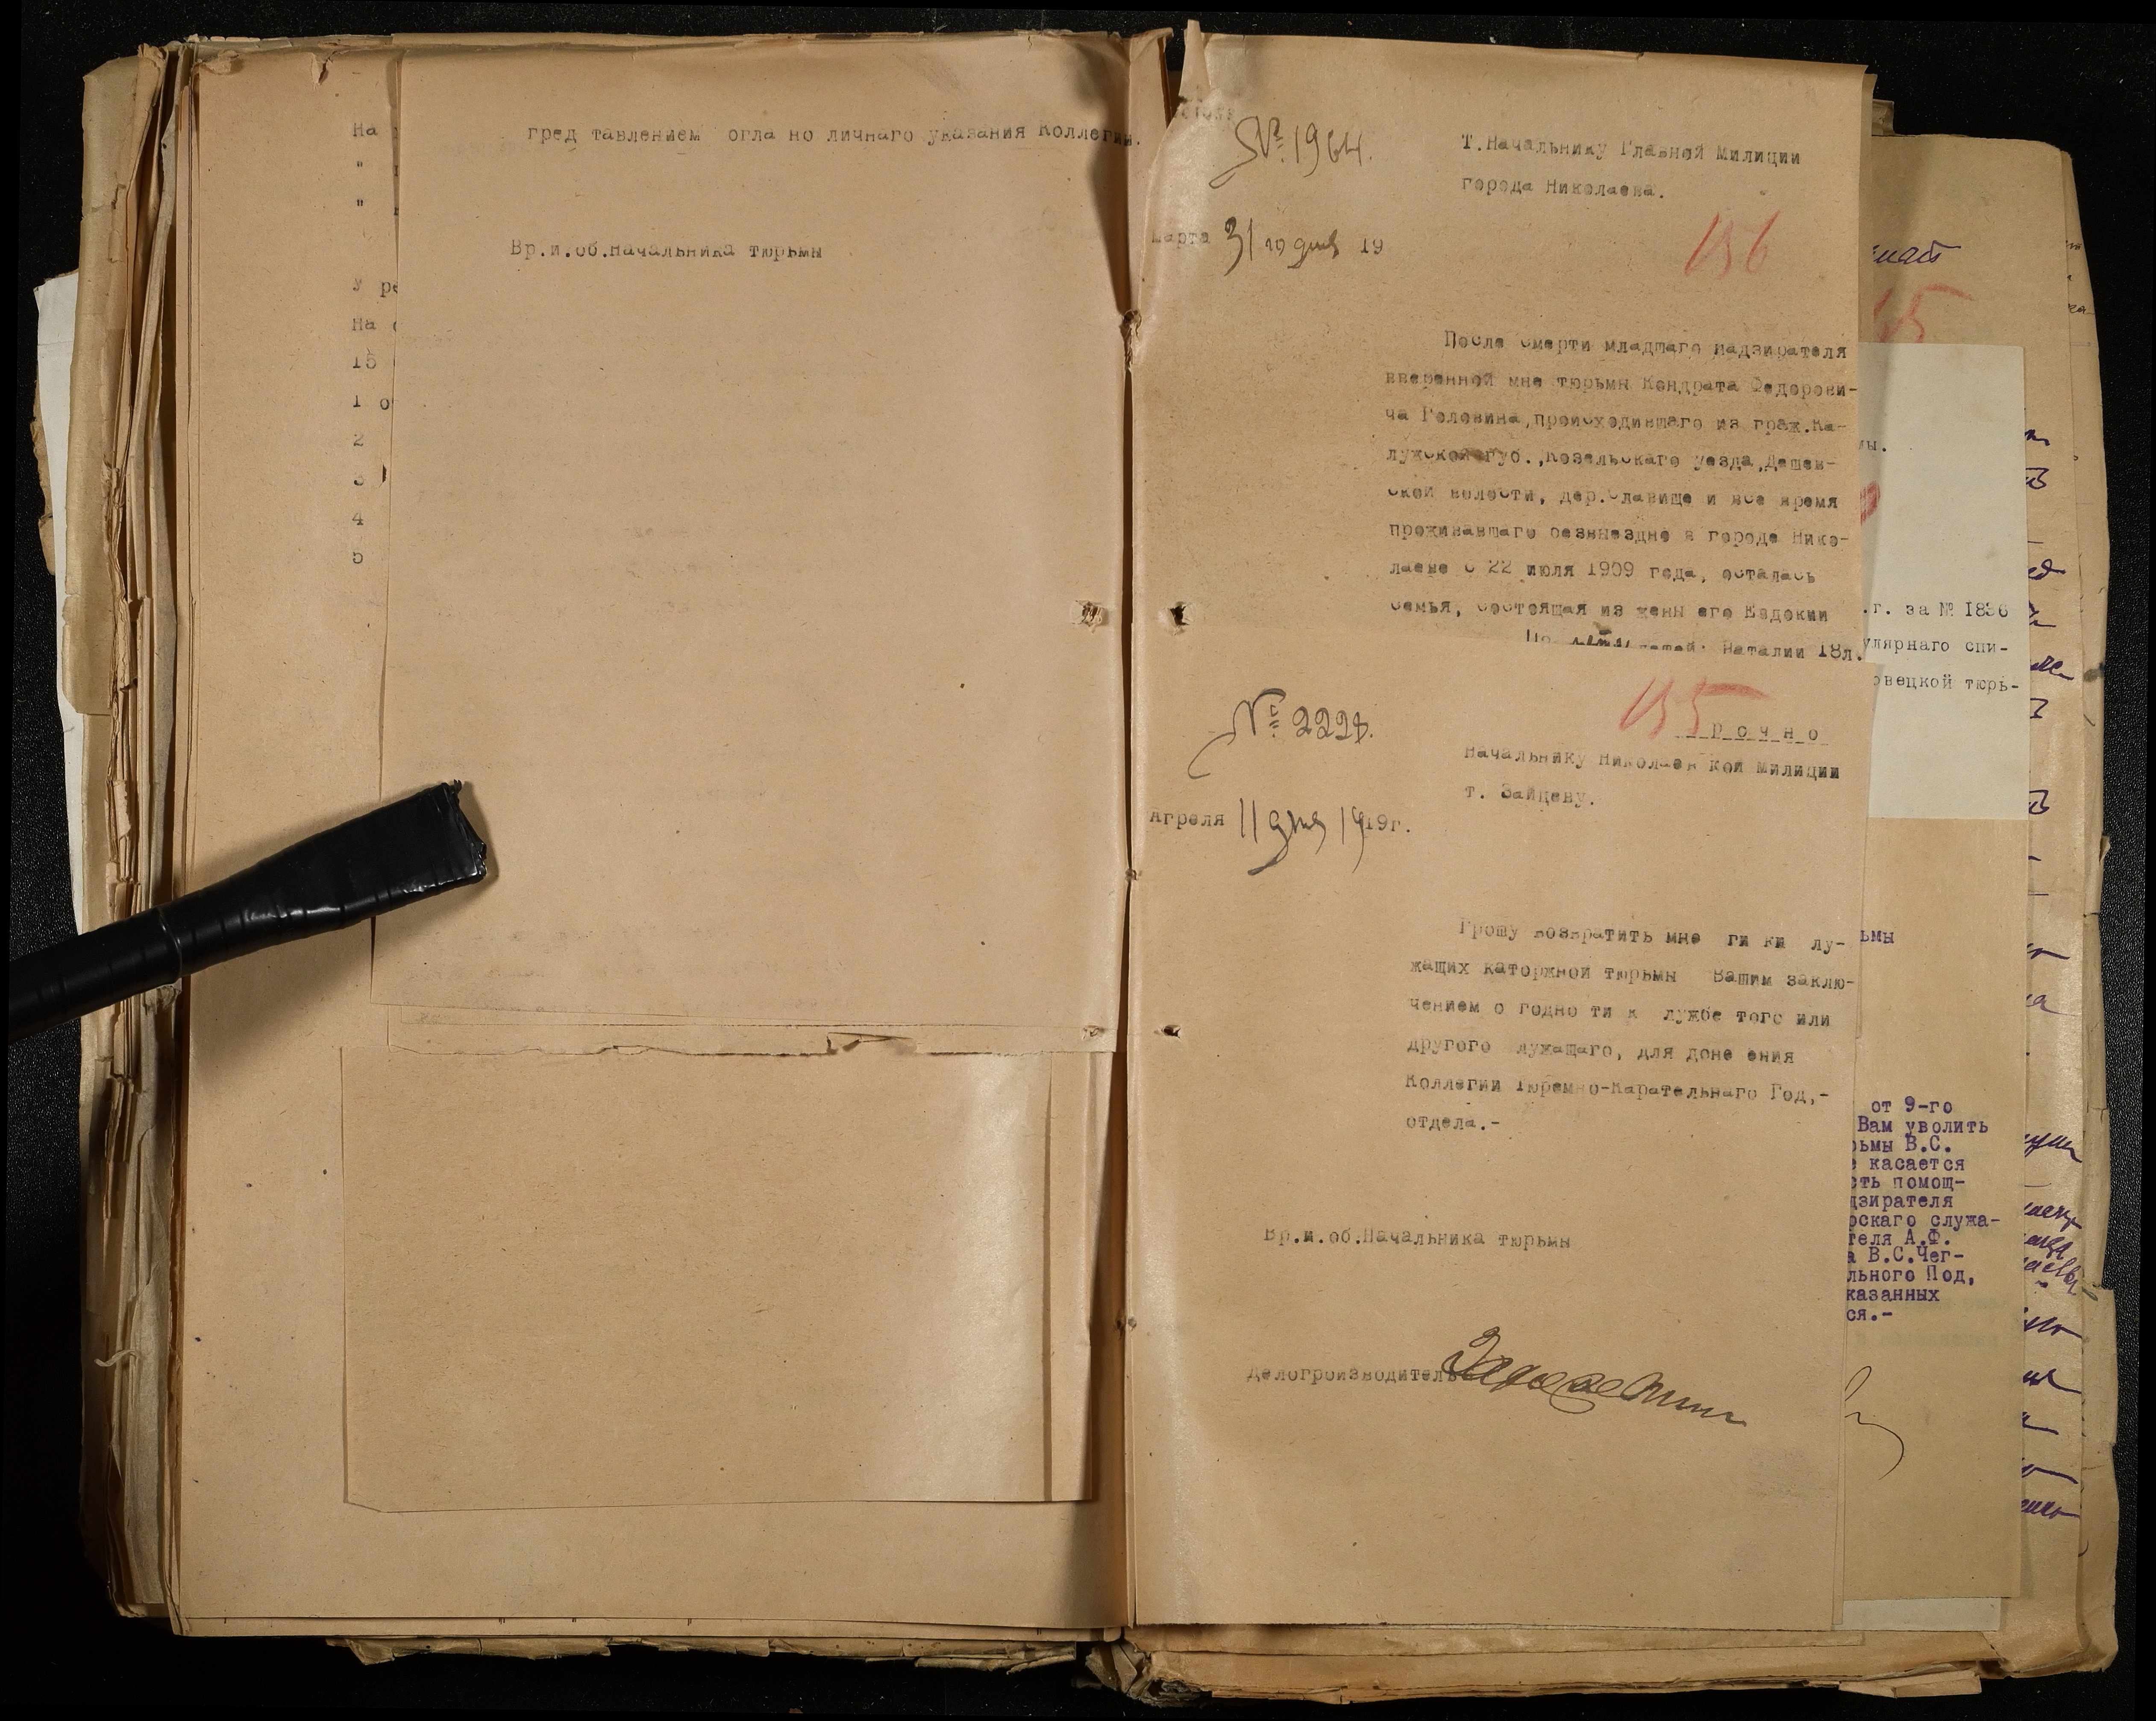 На
"
"
У ре
На с
15
1 о
2
3
4
5
гред тавлением огла но личнаго указания Коллегии.
Вр.и.об.Начальника тюрьмы
№ 1964.
Т.Начальнику Главной Милиции
города Николаева.
Марта 31 го дня 19
156
После смерти младшаго надзирателя
вверенной мне тюрьмы Кондрата Федорови-
ча Головина,происходившаго из граж.Ка-
лужской губ.,Козельскаго уезда,Дешев-
ской волости, дер.Славище и все время
проживавшаго безвыездно в городе Нико-
лаеве с 22 июля 1909 года, осталась
семья, состоящая из жены его Евдокии
Наталии 18л.
155
рочно
№ 2228.
Начальнику Николаев кой милиции
т. Зайцеву.
Апреля 11 дня 1919г.
Грошу возвратить мне ги ки лу-
жащих каторжной тюрьмы Вашим заклю-
чением о годно ти к лужбе того или
другого лужащаго, для доне ения
Коллегии Тюремно-Карательнаго Год,-
отдела.-
Вр.и.об.Начальника тюрьмы
Делогроизводитель
мы.
.г. за № 1836
улярнаго спи-
овецкой тюрь-
ьмы
от 9-го
Вам уволить
рьмы В.С.
е касается
сть помощ-
дзирателя
рскаго служа-
теля А.Ф.
а В.С.Чег-
льного Под,
казанных
ся.-